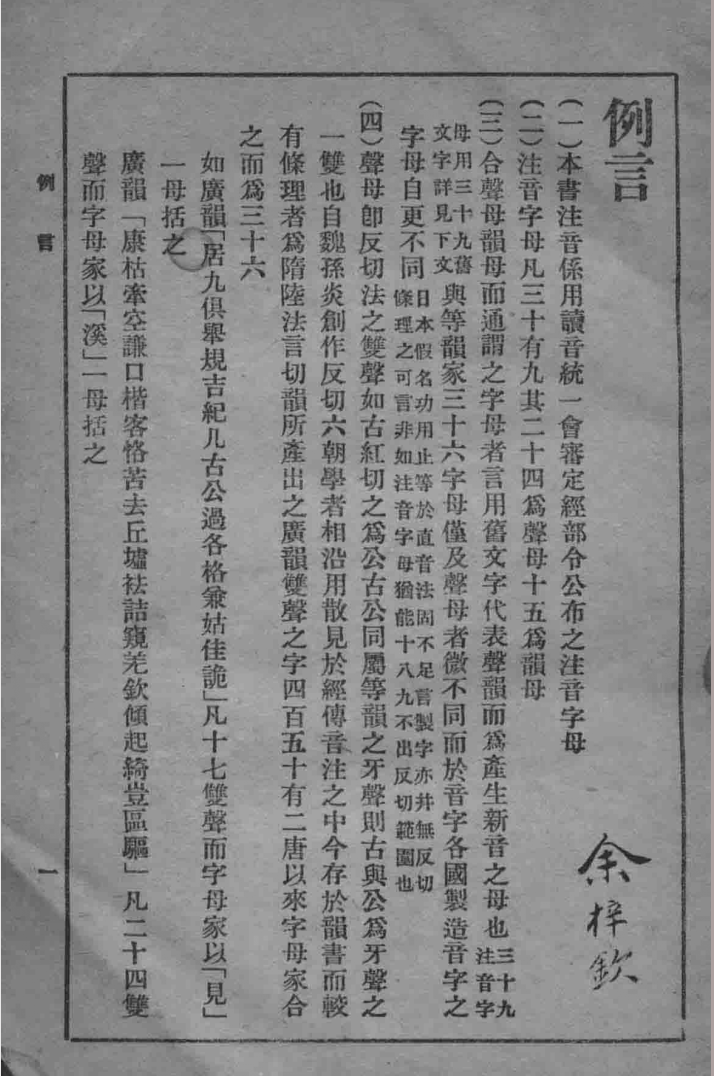 例言
余梓欽
（一）本書注音係用讀音統一會審定經部令公布之注音字母
（二）注音字母凡三十有九其二十四爲聲母十五爲韻母
（三）合聲母韻母而通謂之字母者言用舊文字代表聲韻而爲產生新音之母也三十九注音字
母用三十九舊文字詳見下文與等韻家三十六字母僅及聲母者微不同而於音字各國製造音字之
字母自更不同日本假名功用止等於直音法固不足言製字亦并無反切條理之可言非如注音字母猶能十八九不出反切範圍也
（四）聲母卽反切法之雙聲如古紅切之爲公古公同屬等韻之牙聲則古與公爲牙聲之
一雙也自魏孫炎創作反切六朝學者相沿用散見於經傳音注之中今存於韻書而較
有條理者爲隋陸法言切韻所產出之廣韻雙聲之字四百五十有二唐以來字母家合
之而爲三十六
如廣韻「居九俱舉規吉紀几古公過各格兼姑佳詭」凡十七雙聲而字母家以「見」
一母括之
廣韻「康枯牽空謙口楷客恪苦去丘墟袪詰窺羌欽傾起綺豈區驅」凡二十四雙
聲而字母家以「溪」一母括之
例言
一